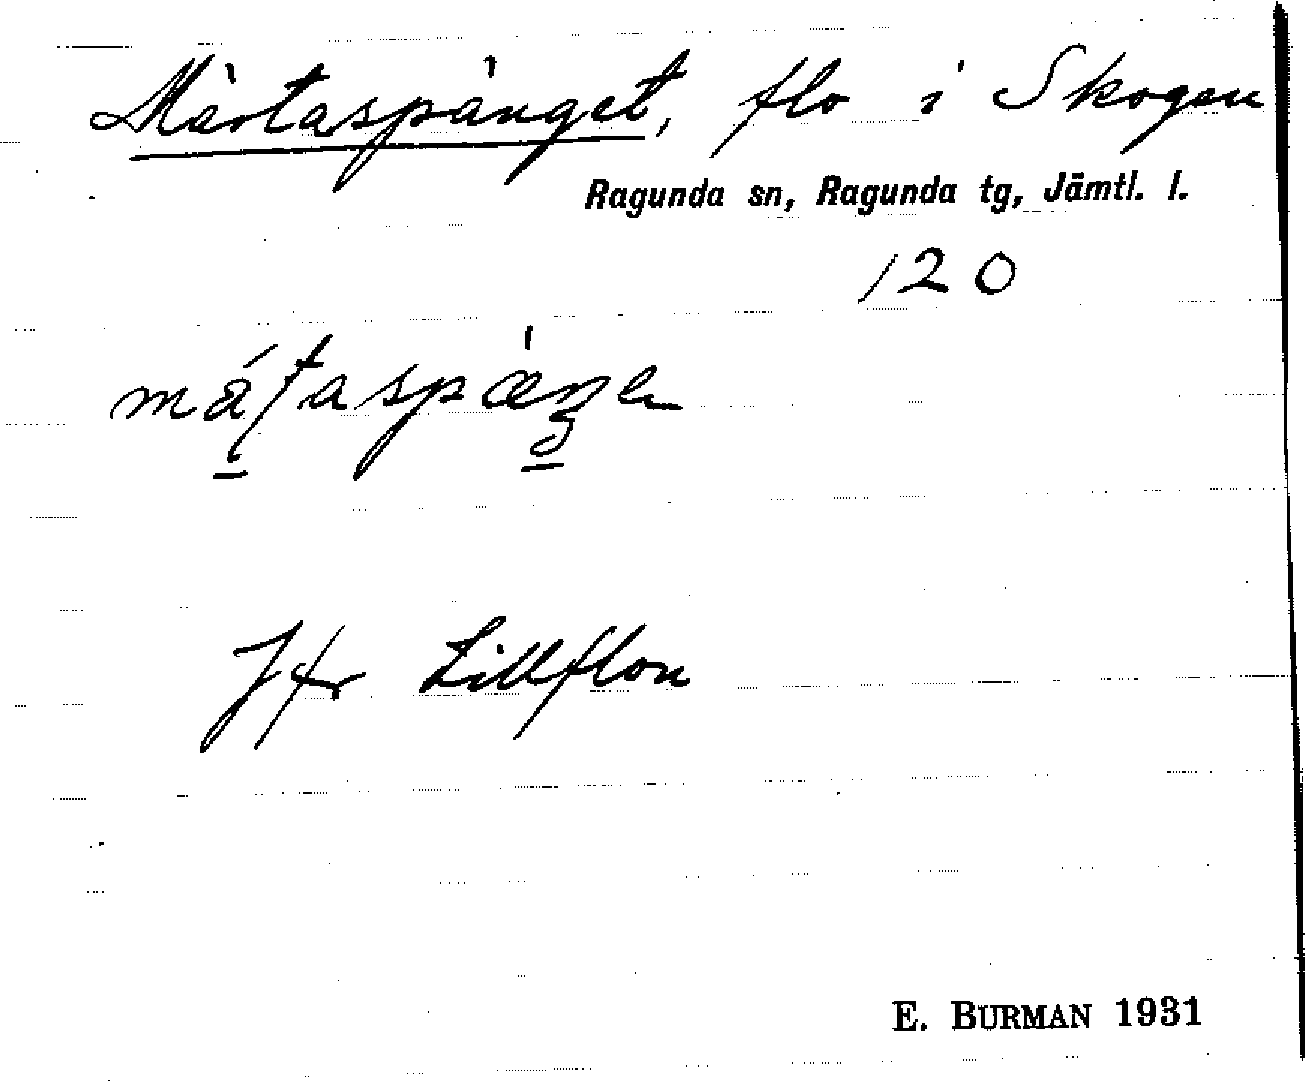 Màrtaspànget, flo i Skogen
Ragunda sn, Ragunda tg, Jämtl. l.
120
Jfr Lillflon
E. BURMAN 1931